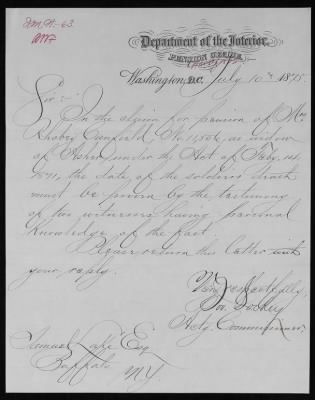 Department of the Interior,
PENSION OFFICE,
Washington, D.C. July 10th 1875.
Sir:-
In the claim for pension of Mrs
Canfield, No. 11,556, as widow
of Asher, under the Act of Feby. 14,
1871, the date of the soldiers death
must be proven by the testimony
of two witnesses having personal
knowledge of the fact.
Please return this letter with
your reply.
Very respectfully,
Actg. Commissioner.
Samuel Lake Esq
Buffalo
N.Y.